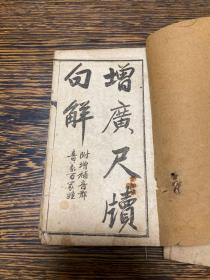 增廣尺牘
句解
附增補音郡
音義百家姓